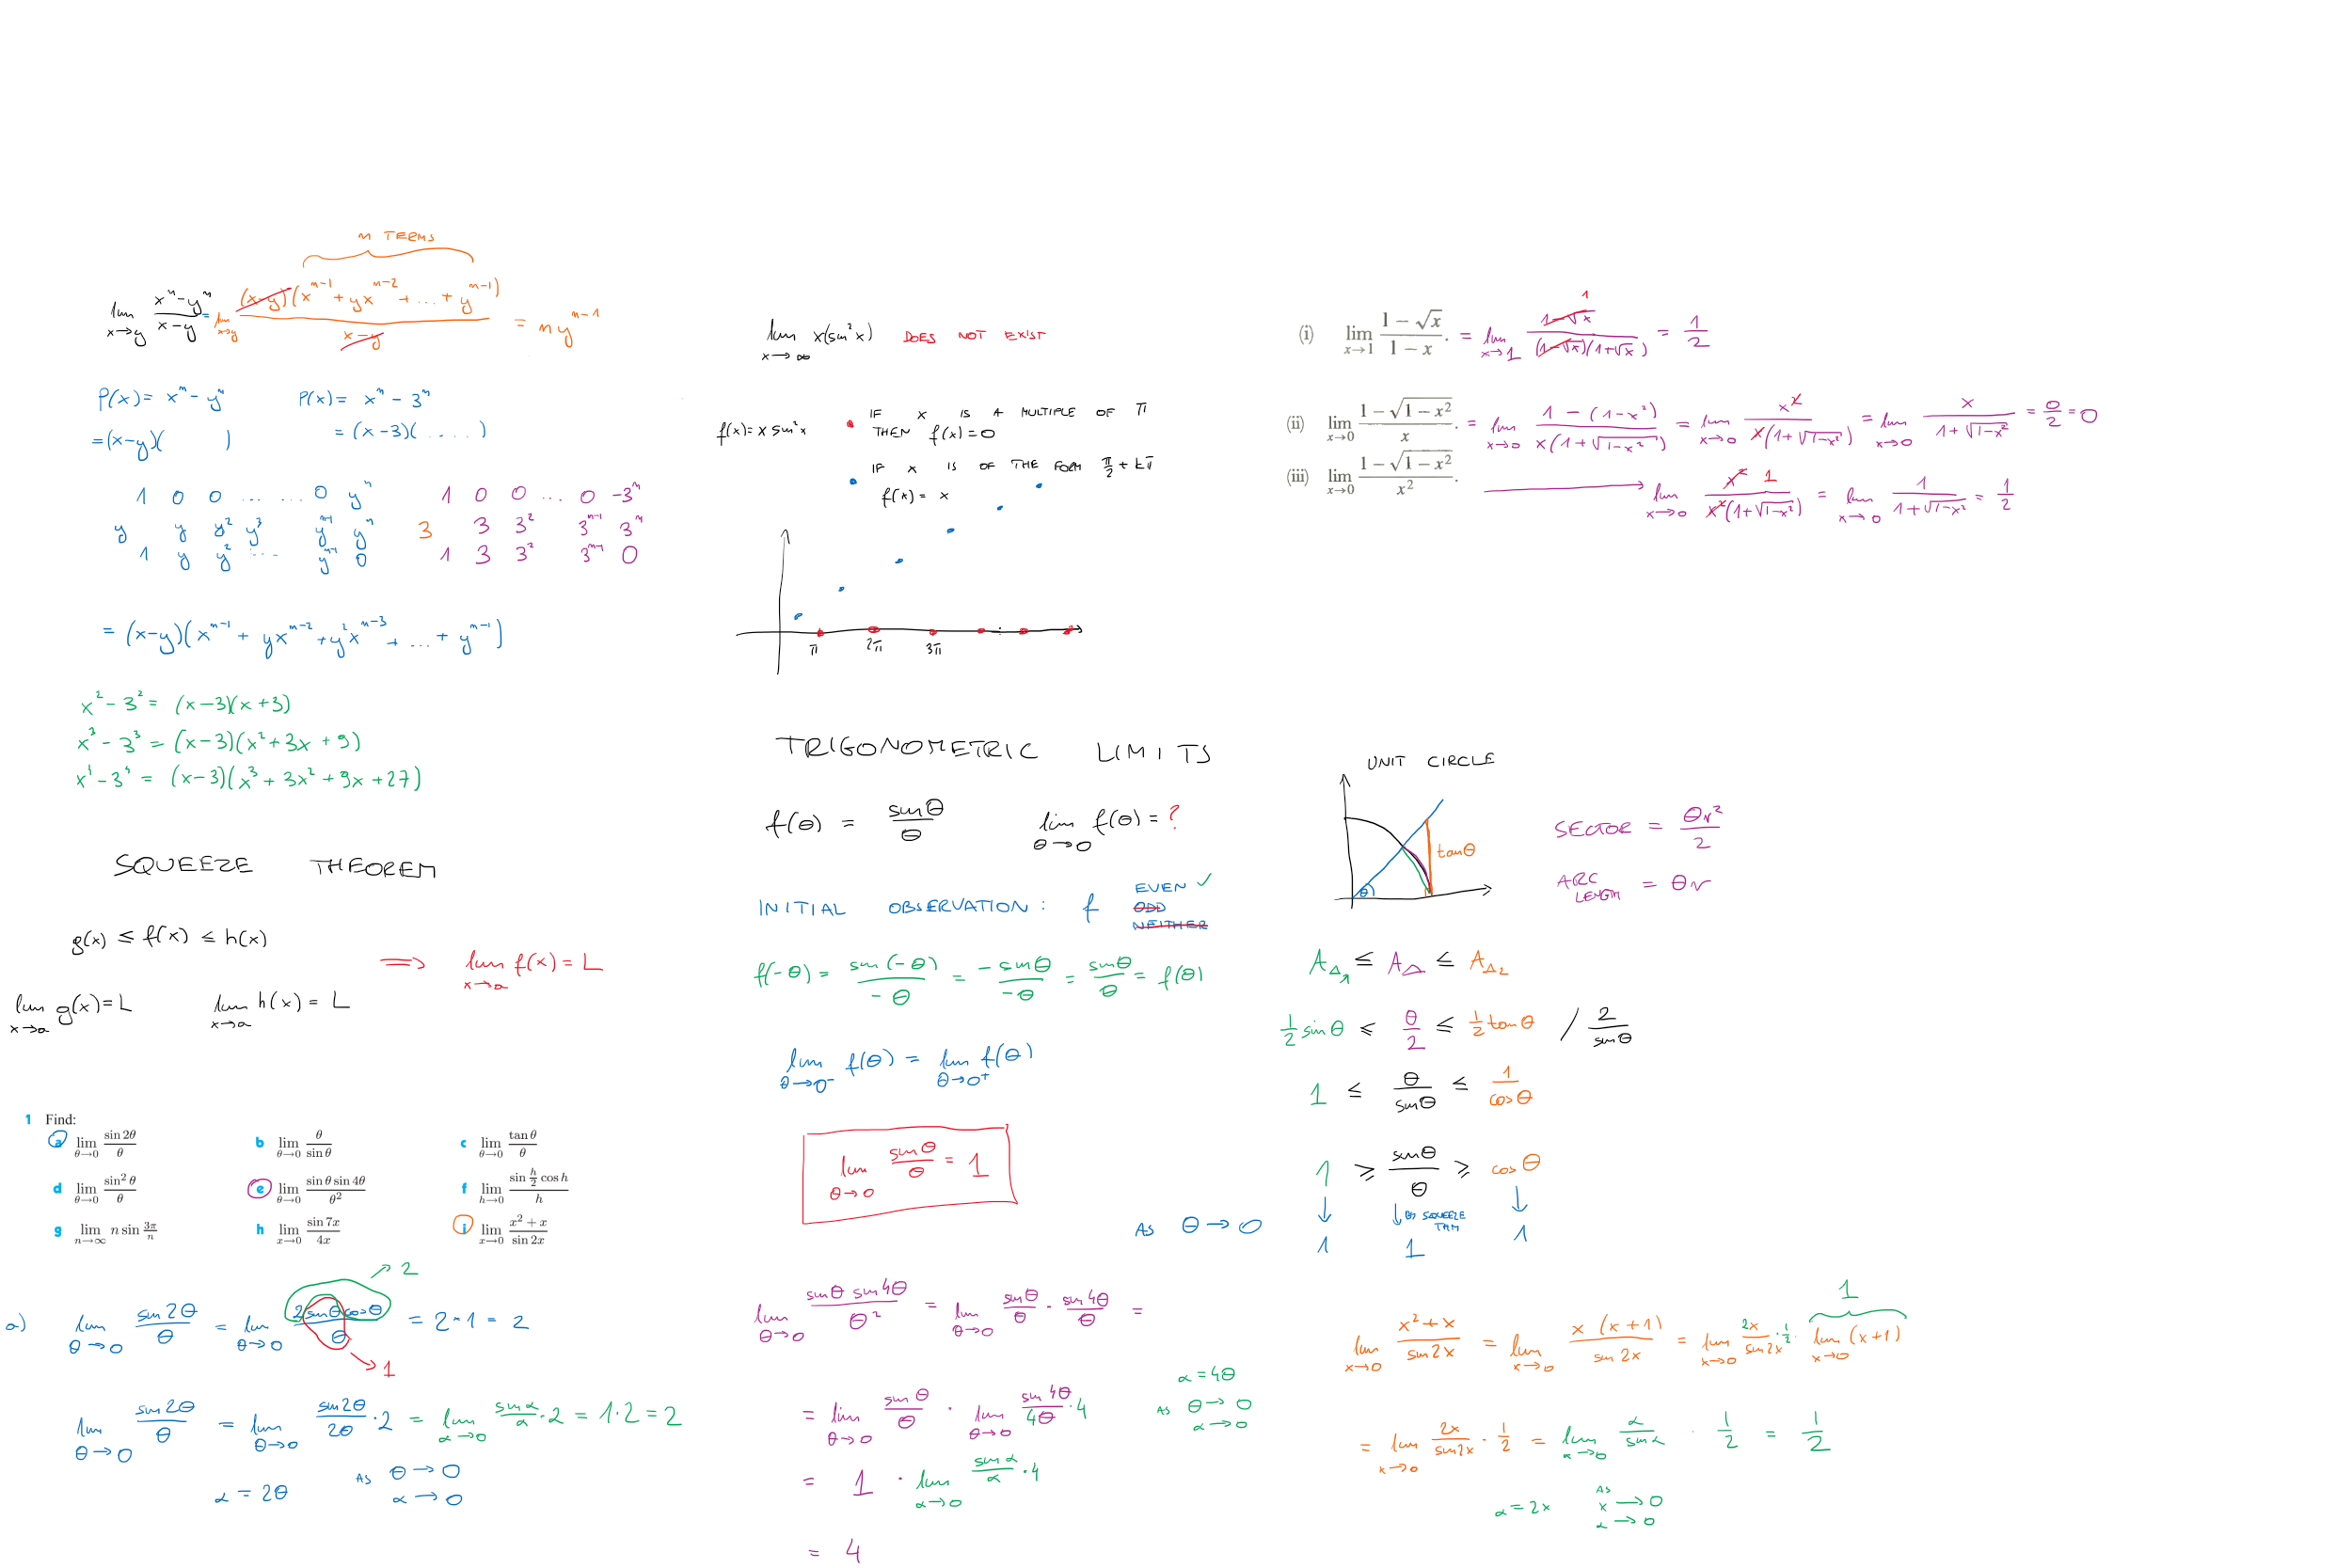 n TERMS
lim x→y (xⁿ-yⁿ)/(x-y) = lim x→y (x-y)(xⁿ⁻¹ + yxⁿ⁻² + ... + yⁿ⁻¹)/(x-y) = nyⁿ⁻¹
P(x) = xⁿ - yⁿ
= (x-y)( )
P(x) = xⁿ - 3ⁿ
= (x-3)( ..... )
1 0 0 ... ... 0 yⁿ
y y y² y³ yⁿ⁻¹ yⁿ
1 y y² ... yⁿ⁻¹ 0
1 0 0 ... 0 -3ⁿ
3 3 3² 3ⁿ⁻¹ 3ⁿ
1 3 3² 3ⁿ⁻¹ 0
= (x-y)(xⁿ⁻¹ + yxⁿ⁻² + y²xⁿ⁻³ + ... + yⁿ⁻¹)
x² - 3² = (x-3)(x+3)
x³ - 3³ = (x-3)(x² + 3x + 9)
x⁴ - 3⁴ = (x-3)(x³ + 3x² + 9x + 27)
SQUEEZE THEOREM
g(x) ≤ f(x) ≤ h(x)
lim x→a g(x) = L lim x→a h(x) = L
⇒ lim x→a f(x) = L
1 Find:
a lim θ→0 sin 2θ/θ b lim θ→0 θ/sin θ c lim θ→0 tan θ/θ
d lim θ→0 sin² θ/θ e lim θ→0 sin θ sin 4θ/θ² f lim h→0 sin (h/2) cos h/h
g lim n→∞ n sin 3π/n h lim x→0 sin 7x/4x i lim x→0 (x² + x)/sin 2x
→ 2
a) lim θ→0 sin 2θ/θ = lim θ→0 2 sin θ cos θ/θ = 2·1 = 2
→ 1
lim θ→0 sin 2θ/θ = lim θ→0 sin 2θ/2θ · 2 = lim α→0 sin α/α · 2 = 1·2 = 2
α = 2θ AS θ→0
α→0
lim x→∞ x(sin²x) DOES NOT EXIST
f(x) = x sin²x
IF x IS A MULTIPLE OF π
THEN f(x) = 0
IF x IS OF THE FORM π/2 + kπ
f(x) = x
π 2π 3π
TRIGONOMETRIC LIMITS
f(θ) = sin θ/θ lim θ→0 f(θ) = ?
INITIAL OBSERVATION: f EVEN ✓
ODD
NEITHER
f(-θ) = sin(-θ)/-θ = -sin θ/-θ = sin θ/θ = f(θ)
lim θ→0⁻ f(θ) = lim θ→0⁺ f(θ)
lim θ→0 sin θ/θ = 1
lim θ→0 sin θ sin 4θ/θ² = lim θ→0 sin θ/θ · sin 4θ/θ =
= lim θ→0 sin θ/θ · lim θ→0 sin 4θ/4θ · 4
α = 4θ
AS θ→0
α→0
= 1 · lim α→0 sin α/α · 4
= 4
(i) lim x→1 (1 - √x)/(1 - x). = lim x→1 (1-√x)/((1-√x)(1+√x)) 1 = 1/2
(ii) lim x→0 (1 - √(1 - x²))/x. = lim x→0 (1 - (1-x²))/(x(1+√(1-x²))) = lim x→0 x²/(x(1+√(1-x²))) = lim x→0 x/(1+√(1-x²)) = 0/2 = 0
(iii) lim x→0 (1 - √(1 - x²))/x². → lim x→0 x² 1/(x²(1+√(1-x²))) = lim x→0 1/(1+√(1-x²)) = 1/2
UNIT CIRCLE
θ
tan θ
SECTOR = θr²/2
ARC LENGTH = θr
A△₁ ≤ A⌓ ≤ A△₂
1/2 sin θ ≤ θ/2 ≤ 1/2 tan θ / 2/sin θ
1 ≤ θ/sin θ ≤ 1/cos θ
1 ≥ sin θ/θ ≥ cos θ
↓ ↓ BY SQUEEZE THM ↓
AS θ→0 1 1 1
1
lim x→0 (x² + x)/sin 2x = lim x→0 x(x+1)/sin 2x = lim x→0 2x/sin 2x · 1/2 · lim x→0 (x+1)
= lim x→0 2x/sin 2x · 1/2 = lim α→0 α/sin α · 1/2 = 1/2
α = 2x AS x→0
α→0